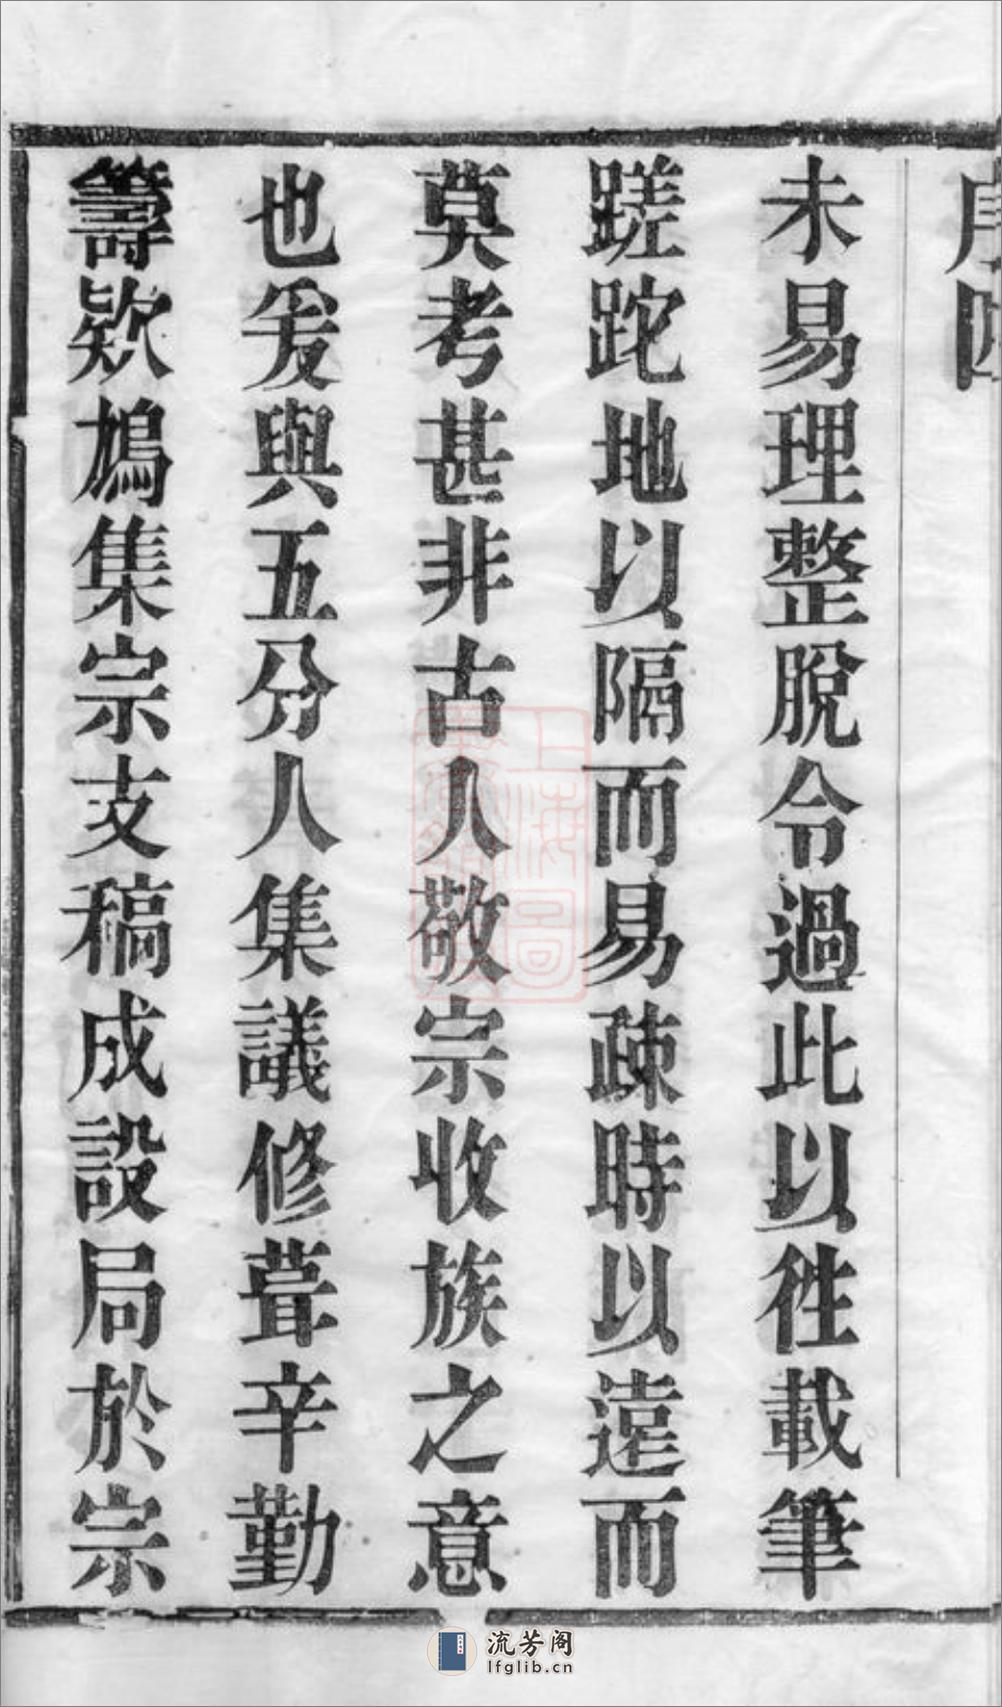 序四
未易理整脫令過此以徃載筆
蹉跎地以隔而易疎時以遠而
莫考甚非古人敬宗收族之意
也爰與五分人集議修葺辛勤
籌欵鳩集宗支稿成設局於宗
上海圖
流芳阁
lfglib.cn